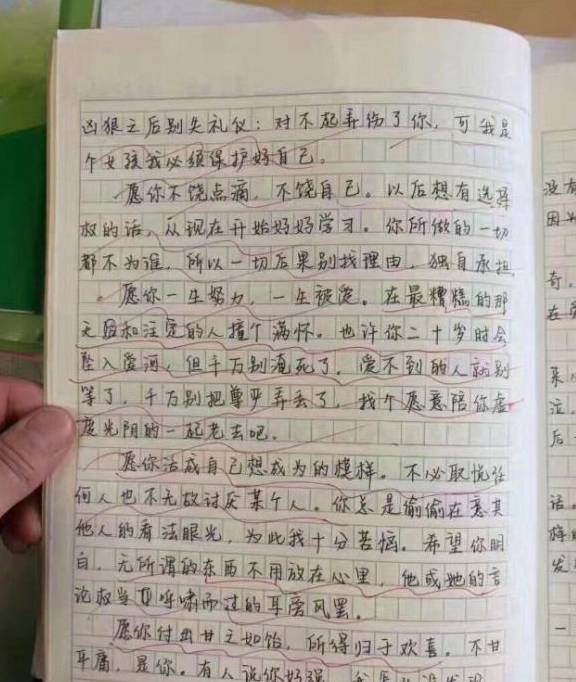 凶狠之后别失礼仪：对不起弄伤了你，可我是
个女孩我必须保护好自己。
愿你不饶点滴，不饶自己。以后想有选择
权的话，从现在开始好好学习。你所做的一切
都不为谁，所以一切后果别找理由，独自承担
愿你一生努力，一生被爱。在最糟糕的那
天盈和注定的人撞个满怀。也许你二十岁时会
坠入爱河，但千万别淹死了，爱不到的人就别
等了，千万别把尊严弄丢了，找个愿意陪你虚
度光阴的一起老去吧。
愿你活成自己想成为的模样。不必取悦任
何人也不无故讨厌某个人。你总是偷偷在意其
他人的看法眼光，为此我十分苦恼。希望你明
白，无所谓的东西不用放在心里，他或她的言
论权当耳呼啸而过的耳旁风罢。
愿你付出甘之如饴，所得归于欢喜。不甘
平庸，是你。有人说你好强，
没有
因为
奇，
在
泣，
后
话。
发
一